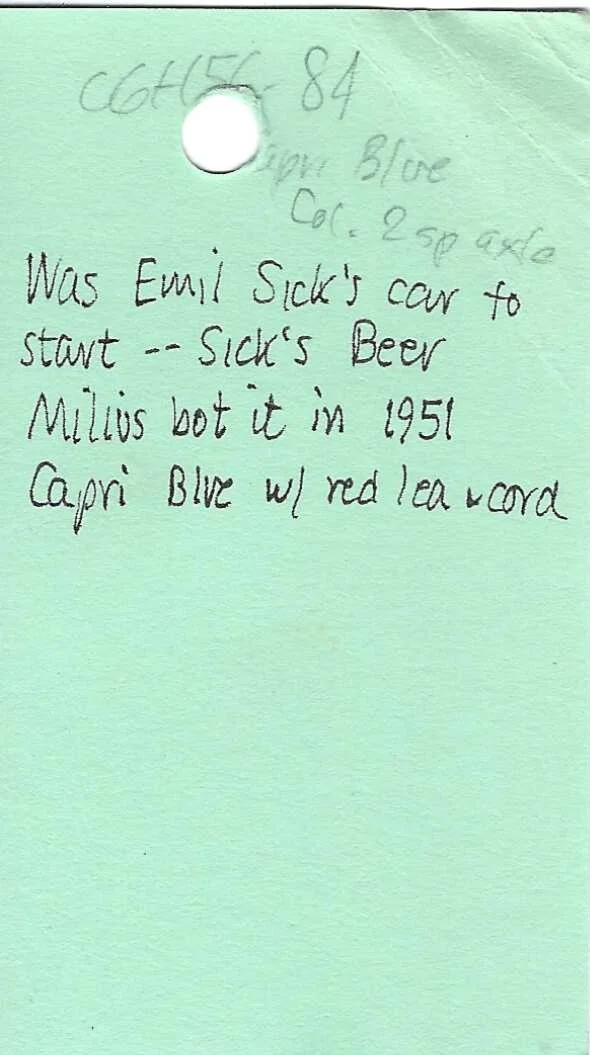 84
Capri Blue
Col. 2 sp axle
Was Emil Sick's car to
start -- Sick's Beer
Milius bot it in 1951
Capri Blue w/ red lea & cord